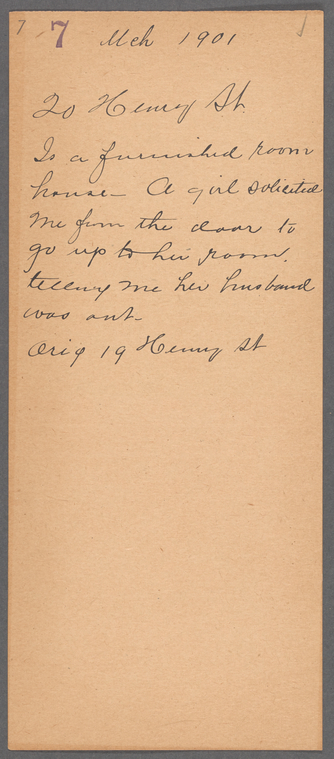 7 7 Mch 1901
20 Henry St.
Is a furnished room
house - A girl solicited
me from the door to
go up to her room.
telling me her husband
was out -
Orig 19 Henry St